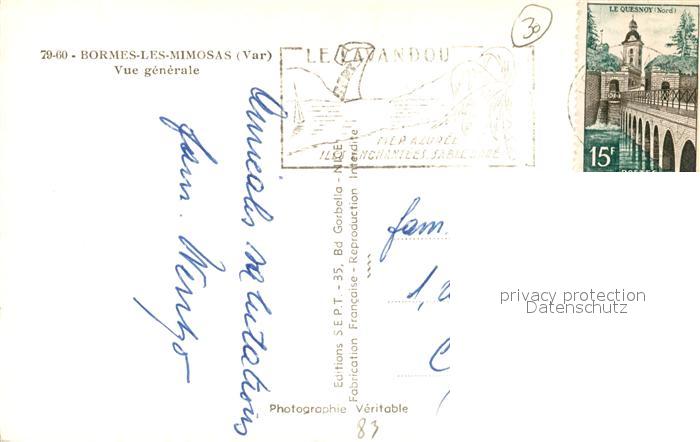 79-60 - BORMES-LES-MIMOSAS (Var)
Vue générale
LE LAVANDOU
MER AZURÉE
ILES ENCHANTÉES SABLE DORÉ
30
LE QUESNOY (Nord)
15F
POSTES
Amicales salutations
fam.
Editions S.E.P.T. - 35, Bd Gorbella - NICE
Fabrication Française - Reproduction Interdite
fam.
1,
privacy protection
Datenschutz
Photographie Véritable
83